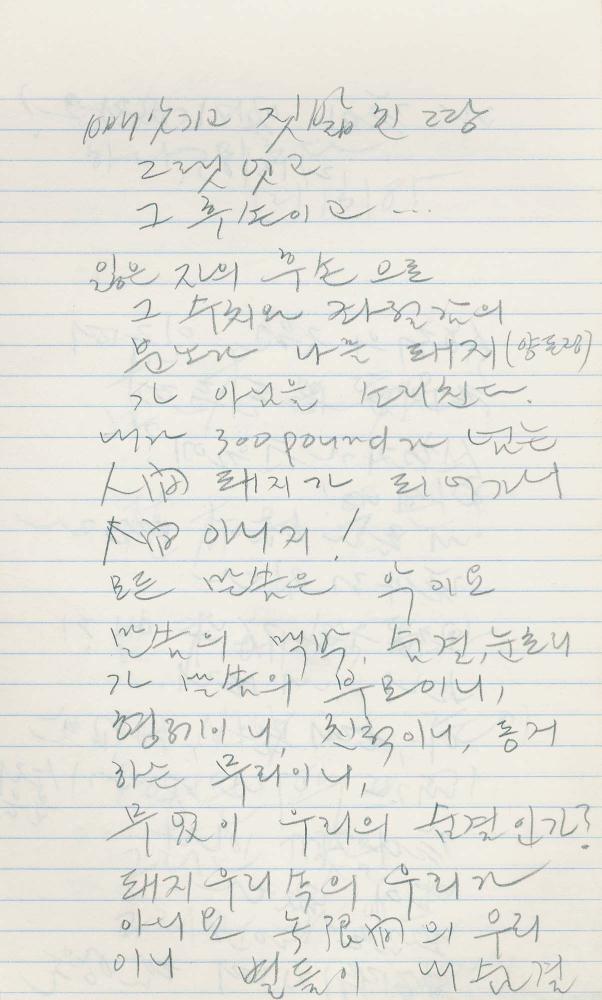 빼앗기고 짓밟힌 그랑
그랬었고
그 후손이고...
잃은 자의 후손으로
그 수치와 좌절감의
분노가 나를 돼지(양돈장)
가 아님을 소리친다.
내가 300pound가 넘는
人间 돼지가 되어가니
人间 아니지!
모든 말씀은 악이요
말씀의 맥박, 숨결, 눈초리
가 말씀의 부모이니,
형제이니, 친척이니, 동거
하는 무리이니,
무엇이 우리의 숨결인가?
돼지우리 속의 우리가
아니요 限间의 우리
이니 별들이 내 숨결